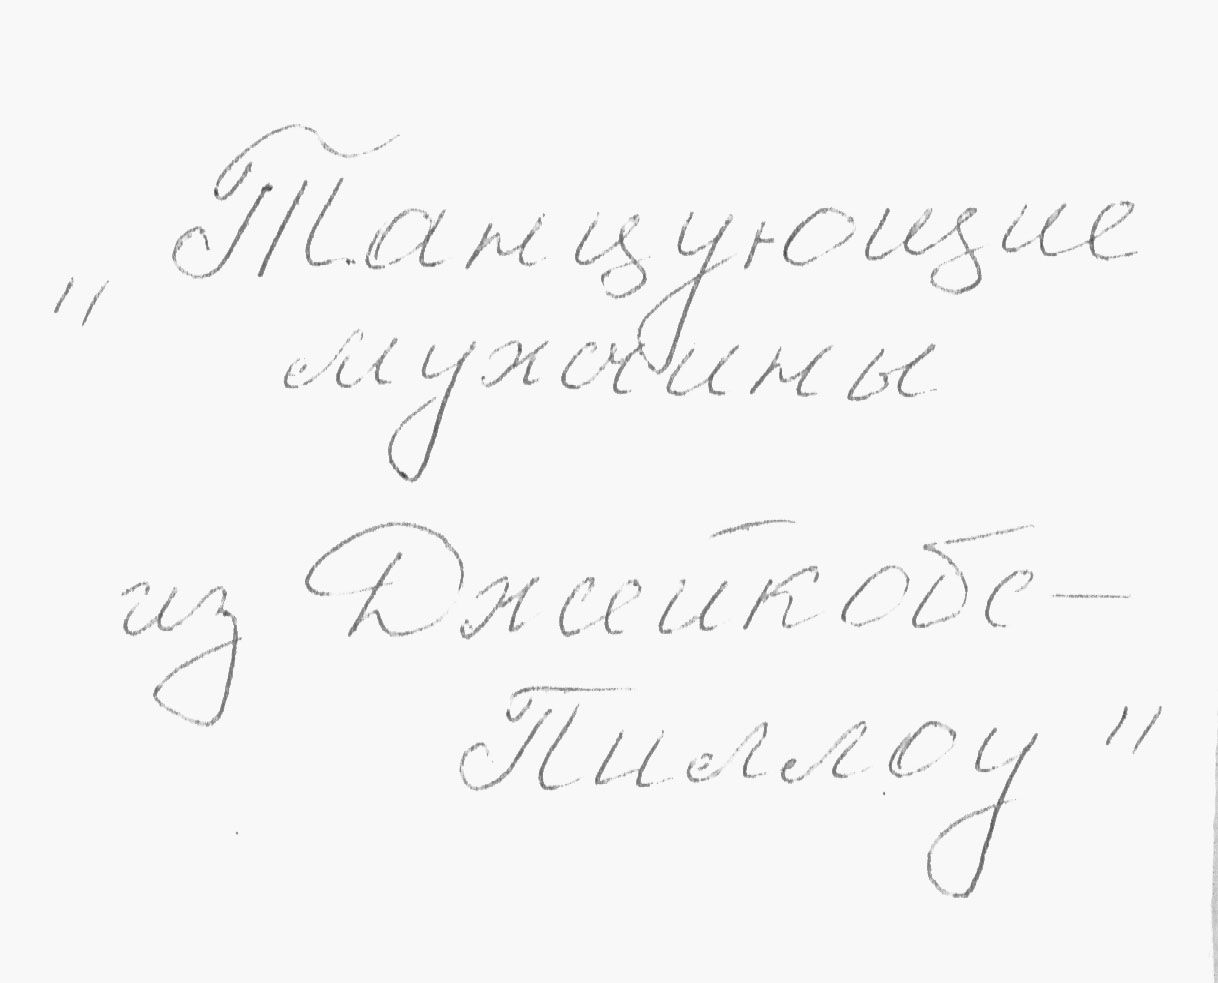 „Танцующие
мужчины
из Джейкобс-
Пиллоу"